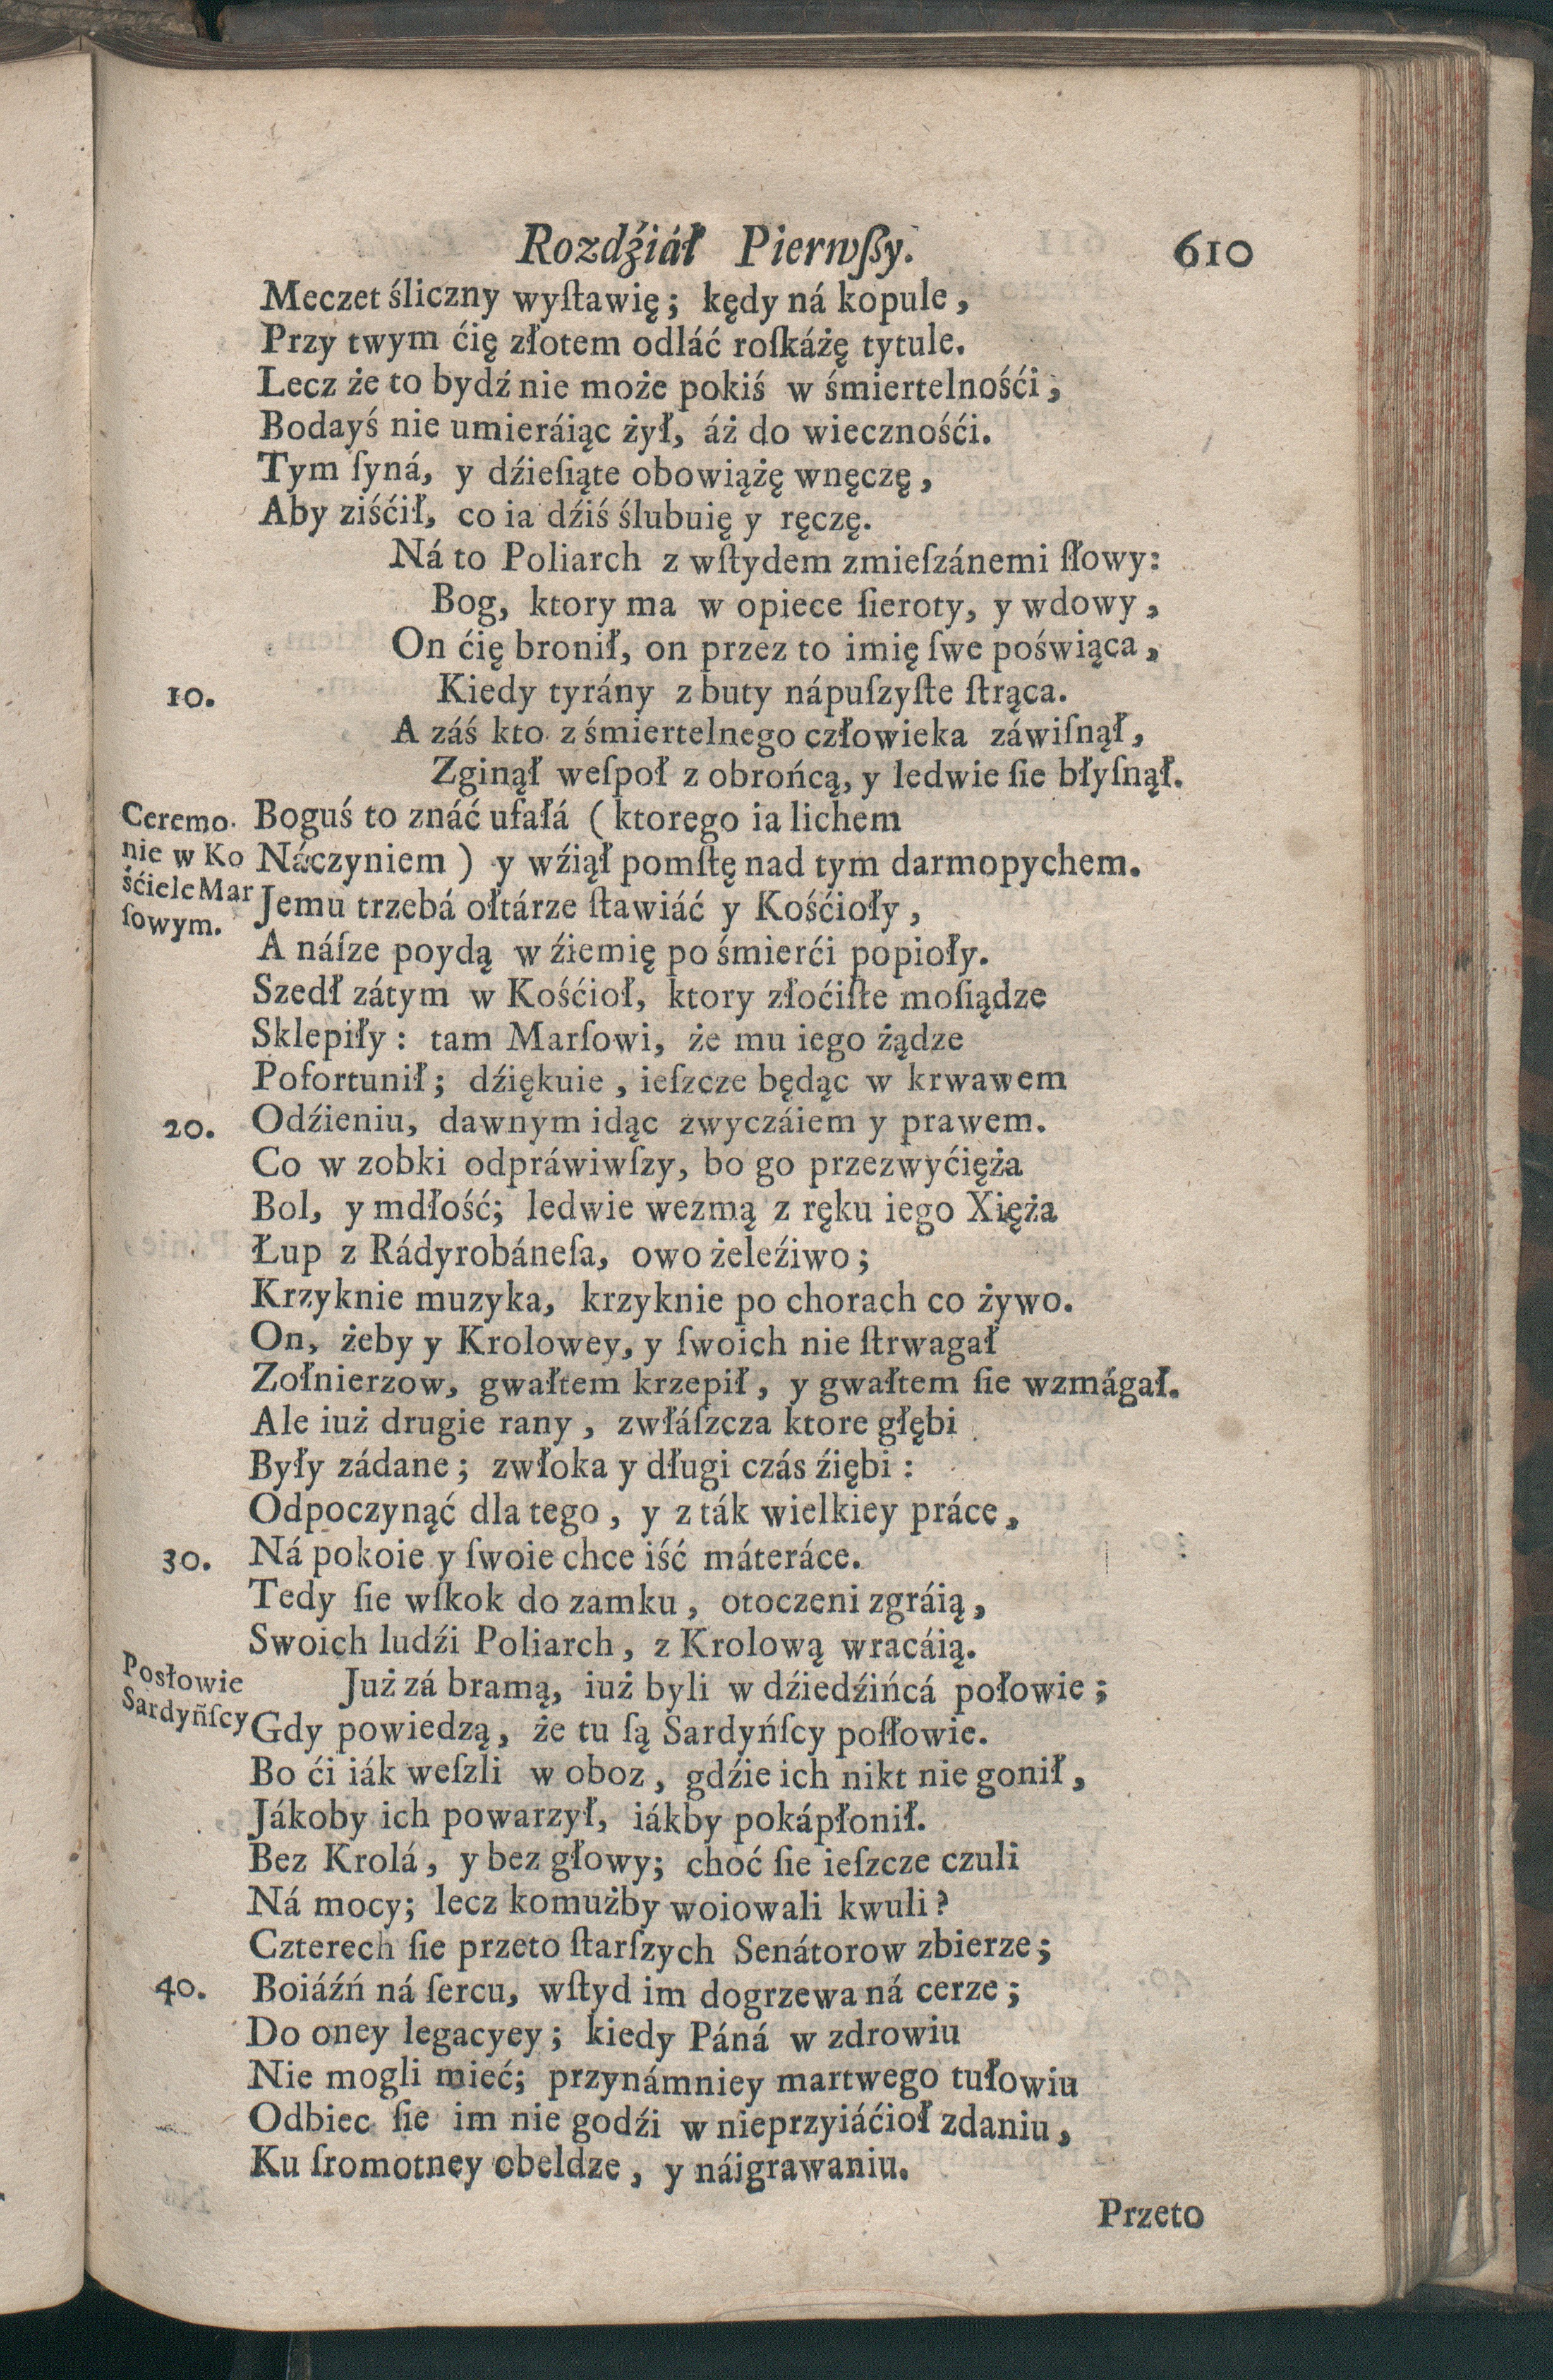 Rozdźiáł Pierwſzy. 610
Meczet śliczny wyſtawię; kędy ná kopule,
Przy twym ćię złotem odláć roſkáżę tytule.
Lecz że to bydź nie może pokiś w śmiertelnośći,
Bodayś nie umieráiąc żył, áż do wiecznośći.
Tym ſyná, y dźieſiąte obowiążę wnęczę,
Aby ziśćił, co ia dźiś ślubuię y ręczę.
Ná to Poliarch z wſtydem zmieſzánemi ſłowy:
Bog, ktory ma w opiece ſieroty, y wdowy,
On ćię bronił, on przez to imię ſwe poświąca,
10. Kiedy tyrány z buty nápuſzyſte ſtrąca.
A záś kto z śmiertelnego człowieka záwiſnął,
Zginął weſpoł z obrońcą, y ledwie ſie błyſnął.
Ceremo- Boguś to znáć ufałá (ktorego ia lichem
nie w Ko Náczyniem) y wźiął pomſtę nad tym darmopychem.
śćiele Mar Jemu trzebá ołtárze ſtawiáć y Kośćioły,
ſowym. A náſze poydą w źiemię po śmierći popioły.
Szedł zátym w Kośćioł, ktory złoćiſte moſiądze
Sklepiły: tam Marſowi, że mu iego żądze
Pofortunił; dźiękuie, ieſzcze będąc w krwawem
20. Odźieniu, dawnym idąc zwyczáiem y prawem.
Co w zobki odpráwiwſzy, bo go przezwyćięża
Bol, y mdłość; ledwie wezmą z ręku iego Xięża
Łup z Rádyrobáneſa, owo żeleźiwo;
Krzyknie muzyka, krzyknie po chorach co żywo.
On, żeby y Krolowey, y ſwoich nie ſtrwagał
Zołnierzow, gwałtem krzepił, y gwałtem ſie wzmágał.
Ale iuż drugie rany, zwłáſzcza ktore głębi
Były zádane; zwłoka y długi czás źiębi:
Odpoczynąć dla tego, y z ták wielkiey práce,
30. Ná pokoie y ſwoie chce iść máteráce.
Tedy ſie wſkok do zamku, otoczeni zgráią,
Swoich ludźi Poliarch, z Krolową wracáią.
Posłowie Już zá bramą, iuż byli w dźiedźińcá połowie;
Sardyńſcy Gdy powiedzą, że tu ſą Sardyńſcy poſłowie.
Bo ći iák weſzli w oboz, gdźie ich nikt nie gonił,
Jákoby ich powarzył, iákby pokápłonił.
Bez Krolá, y bez głowy; choć ſie ieſzcze czuli
Ná mocy; lecz komużby woiowali kwuli?
Czterech ſie przeto ſtarſzych Senátorow zbierze;
40. Boiáźń ná ſercu, wſtyd im dogrzewa ná cerze;
Do oney legacyey; kiedy Páná w zdrowiu
Nie mogli mieć; przynámniey martwego tułowiu
Odbiec ſie im nie godźi w nieprzyiáćioł zdaniu,
Ku ſromotney obeldze, y náigrawaniu.
Przeto